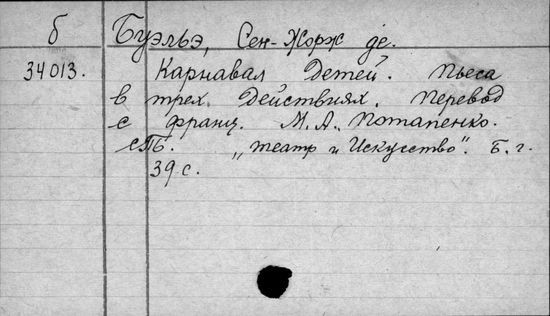 б Буэлье, Сен-Жорж де.
34013. Карнавал Детей. Пьеса
в трех Действиях. Перевод
с франц. М.А. Потапенко.
СПб. „Театр и Искусство". Б.г.
39 с.